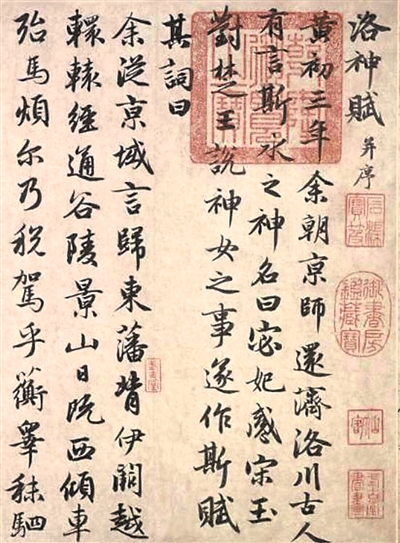 洛神賦 并序
黃初三年余朝京師還濟洛川古人
有言斯水之神名曰宓妃感宋玉
對楚王說神女之事遂作斯賦
其詞曰
余從京域言歸東藩背伊闕越
轘轅經通谷陵景山日既西傾車
殆馬煩尔乃稅駕乎蘅皋秣駟
石渠寶笈
御書房鑑藏寶